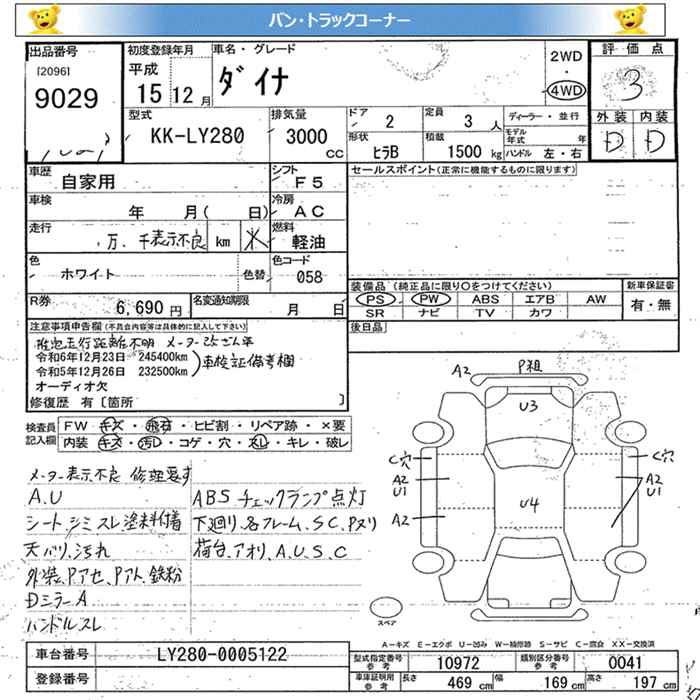 バン・トラックコーナー
出品番号
[2096]
9029
初度登録年月
平成
15 12月
車名・グレード
ダイナ
2WD
・
4WD
評価点
3
外装 内装
D D
型式
KK-LY280
排気量
3000
cc
ドア
2
定員
3 人
形状
ヒラB
積載
1500 kg
ディーラー・並行
モデル年式 年
ハンドル 左・右
車歴
自家用
シフト
F5
セールスポイント(正常に機能するものに限ります)
車検
年 月( 日)
冷房
AC
走行
.万.千表示不良 km ※
燃料
軽油
色
ホワイト
色替
色コード
058
装備品(純正品に限り○をつけてください)
PS PW ABS エアB AW
SR ナビ TV カワ
新車保証書
有・無
R券
6,690 円
名変通知期限
月 日
後日品
注意事項申告欄(不具合内容等は具体的に記入して下さい)
走行距離不明
令和6年12月23日 245400km
令和5年12月26日 232500km
車検証備考欄
オーディオ欠
修復歴 有[箇所 ]
検査員記入欄
FW キズ・飛石・ヒビ割・リペア跡・×要
内装 キズ・汚れ・コゲ・穴・スレ・キレ・破レ
メーター表示不良 修理要す
A.U
シート、シミ スレ、塗料付着
天バリ、汚れ
外装、Pアセ、Pアト、鉄粉
DミラーA
ハンドルスレ
ABSチェックランプ点灯
下廻り、各フレーム、SC、Pヌリ
荷台、アオリ、A、U、S、C
A2
P祖
U3
C穴
A2
U1
A2
U4
C穴
A2
U1
スペア
A－キズ E－エクボ U－凹み W－補修跡 S－サビ C－腐食 XX－交換済
車台番号
LY280-0005122
登録番号
型式指定番号
参考
10972
類別区分番号
参考
0041
車庫証明用
参考
長さ 469 cm
幅 169 cm
高さ 197 cm